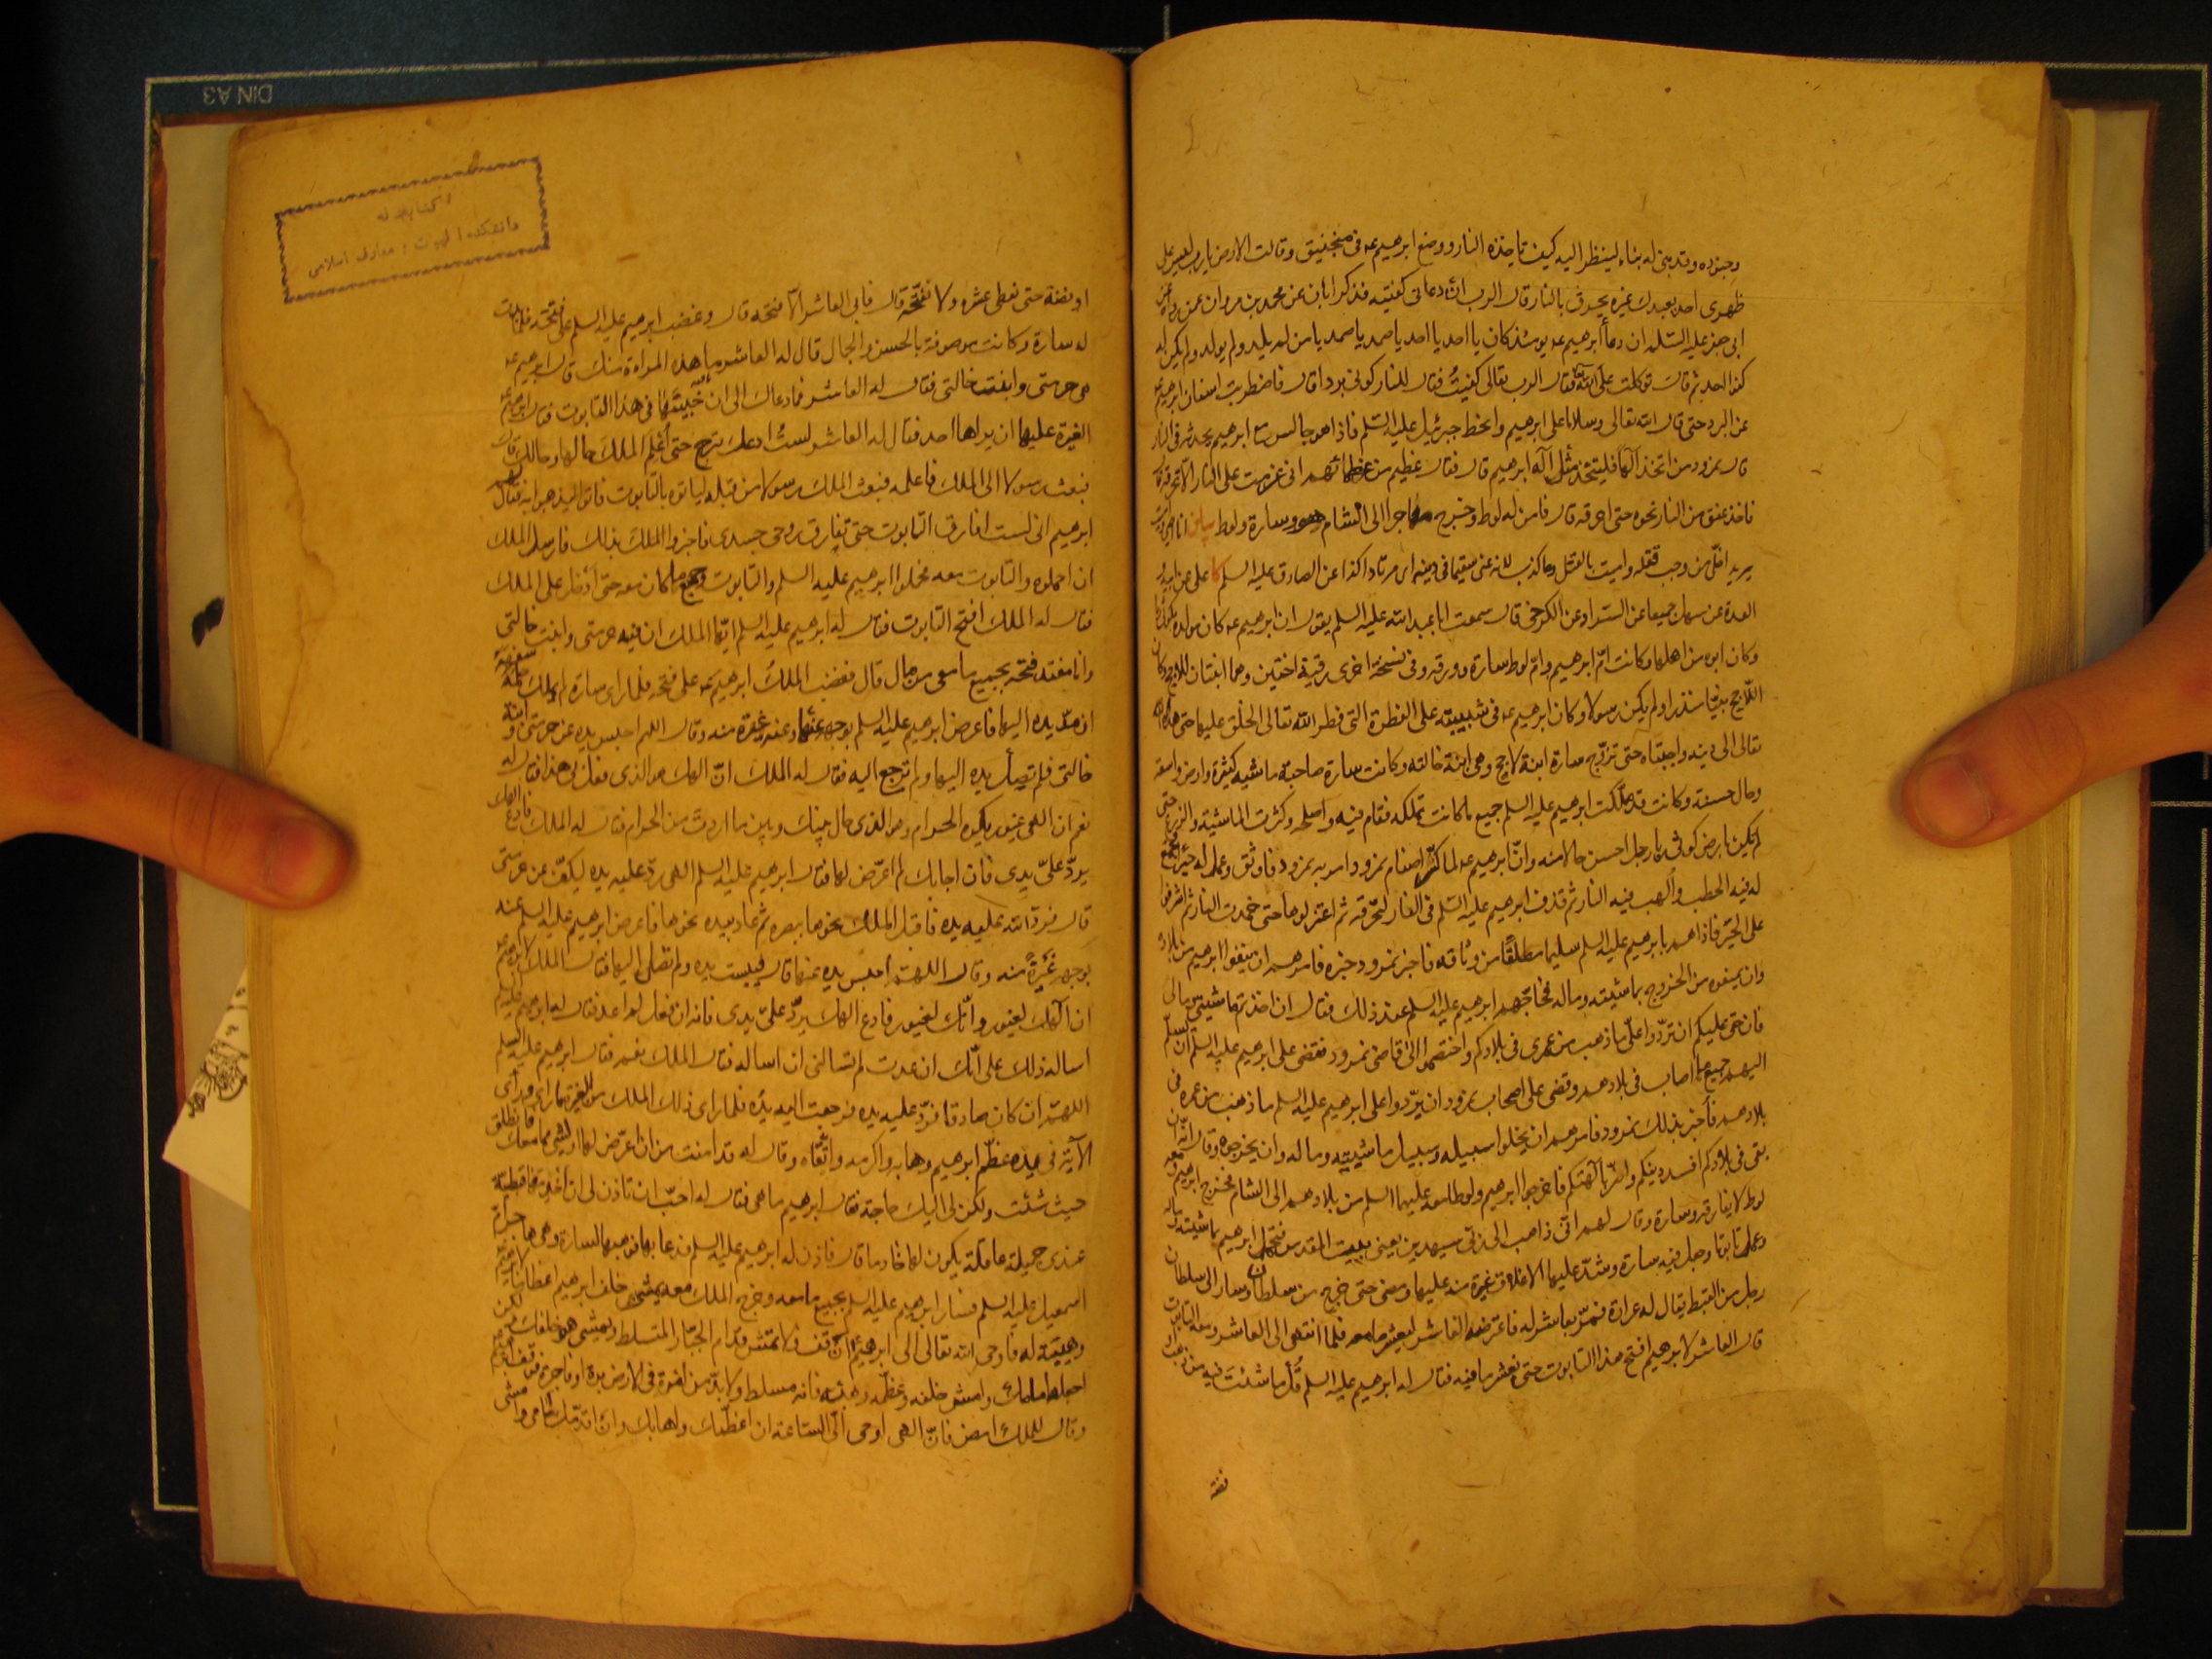 وجنوده وقد بنى له بناء لينظر اليه كيف تاخذه النار ووضع ابرهيم عه فى منجنيق وقالت الارض يا رب ليس على
ظهرى احد يعبدك غيره يحرق بالنار قال الرب ان دعانى كفيته فذكر ابان عن محمد بن مروان عمن رواه عن
ابى جعفر عليه السلم ان دعاء ابرهيم عه يومئذ كان يا احد يا احد يا صمد يا صمد يا من لم يلد ولم يولد ولم يكن له
كفوا احد ثم قال توكلت على الله فقال الرب تعالى كفيت فقال للنار كونى بردا قال فاضطربت اسنان ابرهيم عه
من البرد حتى قال الله تعالى وسلاما على ابرهيم وانحط جبرئيل عليه السلم فاذا هو جالس مع ابرهيم يحدثه فى النار
قال نمرود من اتخذ الها فليتخذ مثل اله ابرهيم قال فقال عظيم من عظمائهم انى عزمت على النار الا تحرقه قال
فاخذ عنق من النار نحوه حتى احرقه قال فامن له لوط وخرج مهاجرا الى الشام هو وسارة ولوط بيان انا احيى واميت
يريد اخلى من وجب قتله واميت بالقتل وما كذب لانه عنى سقيما فى دينه اى مرتادا كذا عن الصادق عليه السلم كا على عن ابيه و
العدة عن سهل جميعا عن السراد عن الكرخى قال سمعت ابا عبد الله عليه السلم يقول ان ابرهيم عه كان مولده بكوثى ربا
وكان ابوه من اهلها وكانت ام ابرهيم وام لوط سارة وورقه وفى نسخة اخرى رقية اختين وهما ابنتان للاحج وكان
اللاحج نبيا منذرا ولم يكن رسولا وكان ابرهيم عه فى شبيبته على الفطرة التى فطر الله تعالى الخلق عليها حتى هداه الله
تعالى الى دينه واجتباه حتى تزوج سارة ابنة لاحج وهى ابنة خالته وكانت سارة صاحبة ماشية كثيرة وارض واسعة
وحال حسنة وكانت قد ملكت ابرهيم عليه السلم جميع ما كانت تملكه فقام فيه واصلحه وكثرت الماشية والزرع حتى
لم يكن بارض كوثى ربا رجل احسن حالا منه وان ابرهيم عه لما كسر اصنام نمرود امر به نمرود فاوثق وعمل له حيرا فجمع
له فيه الحطب والهب فيه النار ثم قذف ابرهيم عليه السلم فى النار لتحرقه ثم اعتزلوها حتى خمدت النار ثم اشرفوا
على الحير فاذا هم بابرهيم عليه السلم سليما مطلقا من وثاقه فاخبر نمرود خبره فامرهم ان ينفوا ابرهيم من بلاده
وان يمنعوه من الخروج بماشيته وماله فحاجهم ابرهيم عليه السلم عند ذلك فقال ان اخذتم ماشيتى ومالى
فان حقى عليكم ان تردوا على ما ذهب من عمرى فى بلادكم واختصموا الى قاضى نمرود فقضى على ابرهيم عليه السلم ان يسلم
اليهم جميع ما اصاب فى بلادهم وقضى على اصحاب نمرود ان يردوا على ابرهيم عليه السلم ما ذهب من عمره فى
بلادهم فاخبر بذلك نمرود فامرهم ان يخلوا سبيله وسبيل ماشيته وماله وان يخرجوه وقال انه ان
بقى فى بلادكم افسد دينكم واضر بالهتكم فاخرجوا ابرهيم ولوطا معه عليهما السلم من بلادهم الى الشام فخرج ابرهيم ومعه
لوط لا يفارقه وسارة وقال لهم انى ذاهب الى ربى سيهدين يعنى بيت المقدس فتحمل ابرهيم بماشيته وماله
وعمل تابوتا وجعل فيه سارة وشد عليها الاغلاق غيرة منه عليها ومضى حتى خرج من سلطان وسار الى سلطان
رجل من القبط يقال له عرارة فمر بعاشر له فاعترضه العاشر ليعشر ما معه فلما انتهى الى العاشر ومعه التابوت
قال العاشر لابرهيم افتح هذا التابوت حتى نعشر ما فيه فقال له ابرهيم عليه السلم قل ما شئت فيه من ذهب
فضة
كتابخانه
دانشكده الهيات و معارف اسلامى
او فضة حتى نعطى عشره ولا نفتحه قال فابى العاشر الا فتحه قال وغضب ابرهيم عليه السلم على فتحه فلما بدت
له سارة وكانت موصوفة بالحسن والجمال قال له العاشر ما هذه المراءة منك قال ابرهيم عه
هى حرمتى وابنت خالتى فقال له العاشر فما دعاك الى ان خبيتها فى هذا التابوت فقال ابرهيم عه
الغيرة عليها ان يراها احد فقال له العاشر لست ادعك تبرح حتى اعلم الملك حالها وحالك قال
فبعث رسولا الى الملك فاعلمه فبعث الملك رسولا من قبله لياتوه بالتابوت فاتوا ليذهبوا به فقال لهم
ابرهيم انى لست افارق التابوت حتى تفارق روحى جسدى فاخبروا الملك بذلك فارسل الملك
ان احملوه والتابوت معه فحملوا ابرهيم عليه السلم والتابوت وجميع ما كان معه حتى ادخل على الملك
فقال له الملك افتح التابوت فقال له ابرهيم عليه السلم ايها الملك ان فيه حرمتى وابنت خالتى
وانا مفتد فتحه بجميع ما معى من مال قال فغضب الملك ابرهيم عه على فتحه فلما راى سارة لم يملك حلمه سفهه
ان مد يده اليها فاعرض ابرهيم عليه السلم بوجهه عنها وعنه غيرة منه وقال اللهم احبس يده عن حرمتى وابنة
خالتى فلم تصل يده اليها ولم ترجع اليه فقال له الملك ان الهك هو الذى فعل بى هذا فقال له
نعم ان الهى غيور يكره الحرام وهو الذى حال بينك وبين ما اردت من الحرام فقال له الملك فادع الهك
يرد على يدى فان اجابك لم اعرض لها فقال ابرهيم عليه السلم الهى رد عليه يده ليكف عن حرمتى
قال فرد الله عليه يده فاقبل الملك نحوها ببصره ثم عاد بيده نحوها فاعرض ابرهيم عليه السلم عنه
بوجهه غيرة منه وقال اللهم احبس يده عنها قال فيبست يده ولم تصل اليها فقال الملك لابرهيم عه
ان الهك لغيور وانك لغيور فادع الهك يرد على يدى فانه ان فعل لم اعد فقال له ابرهيم عليه السلم
اساله ذلك على انك ان عدت لم تسالنى ان اساله فقال الملك نعم فقال ابرهيم عليه السلم
اللهم ان كان صادقا فرد عليه يده فرجعت اليه يده فلما راى ذلك الملك من الغيرة ما راى وراى
الاية فى يده عظم ابرهيم وهابه واكرمه واتقاه وقال له قد امنت من ان اعرض لها او لشىء مما معك فانطلق
حيث شئت ولكن لى اليك حاجة فقال ابرهيم ما هى فقال له احب ان تاذن لى ان اخدمها قبطية
عندى جميلة عاقلة يكون لها خادما قال فاذن له ابرهيم عليه السلم فدعا بها فوهبها لسارة وهى هاجر ام
اسمعيل عليه السلم فسار ابرهيم عليه السلم بجميع ما معه وخرج الملك معه يمشى خلف ابرهيم اعظاما لابرهيم
وهيبة له فاوحى الله تعالى الى ابرهيم ان قف ولا تمش قدام الجبار المتسلط ويمشى هو خلفك ولكن
اجعله امامك وامش خلفه وعظمه وهبه فانه مسلط ولا بد من امرة فى الارض برة او فاجرة فوقف ابرهيم
وقال للملك امض فان الهى اوحى الى الساعة ان اعظمك واهابك وان اقدمك امامى وامشى